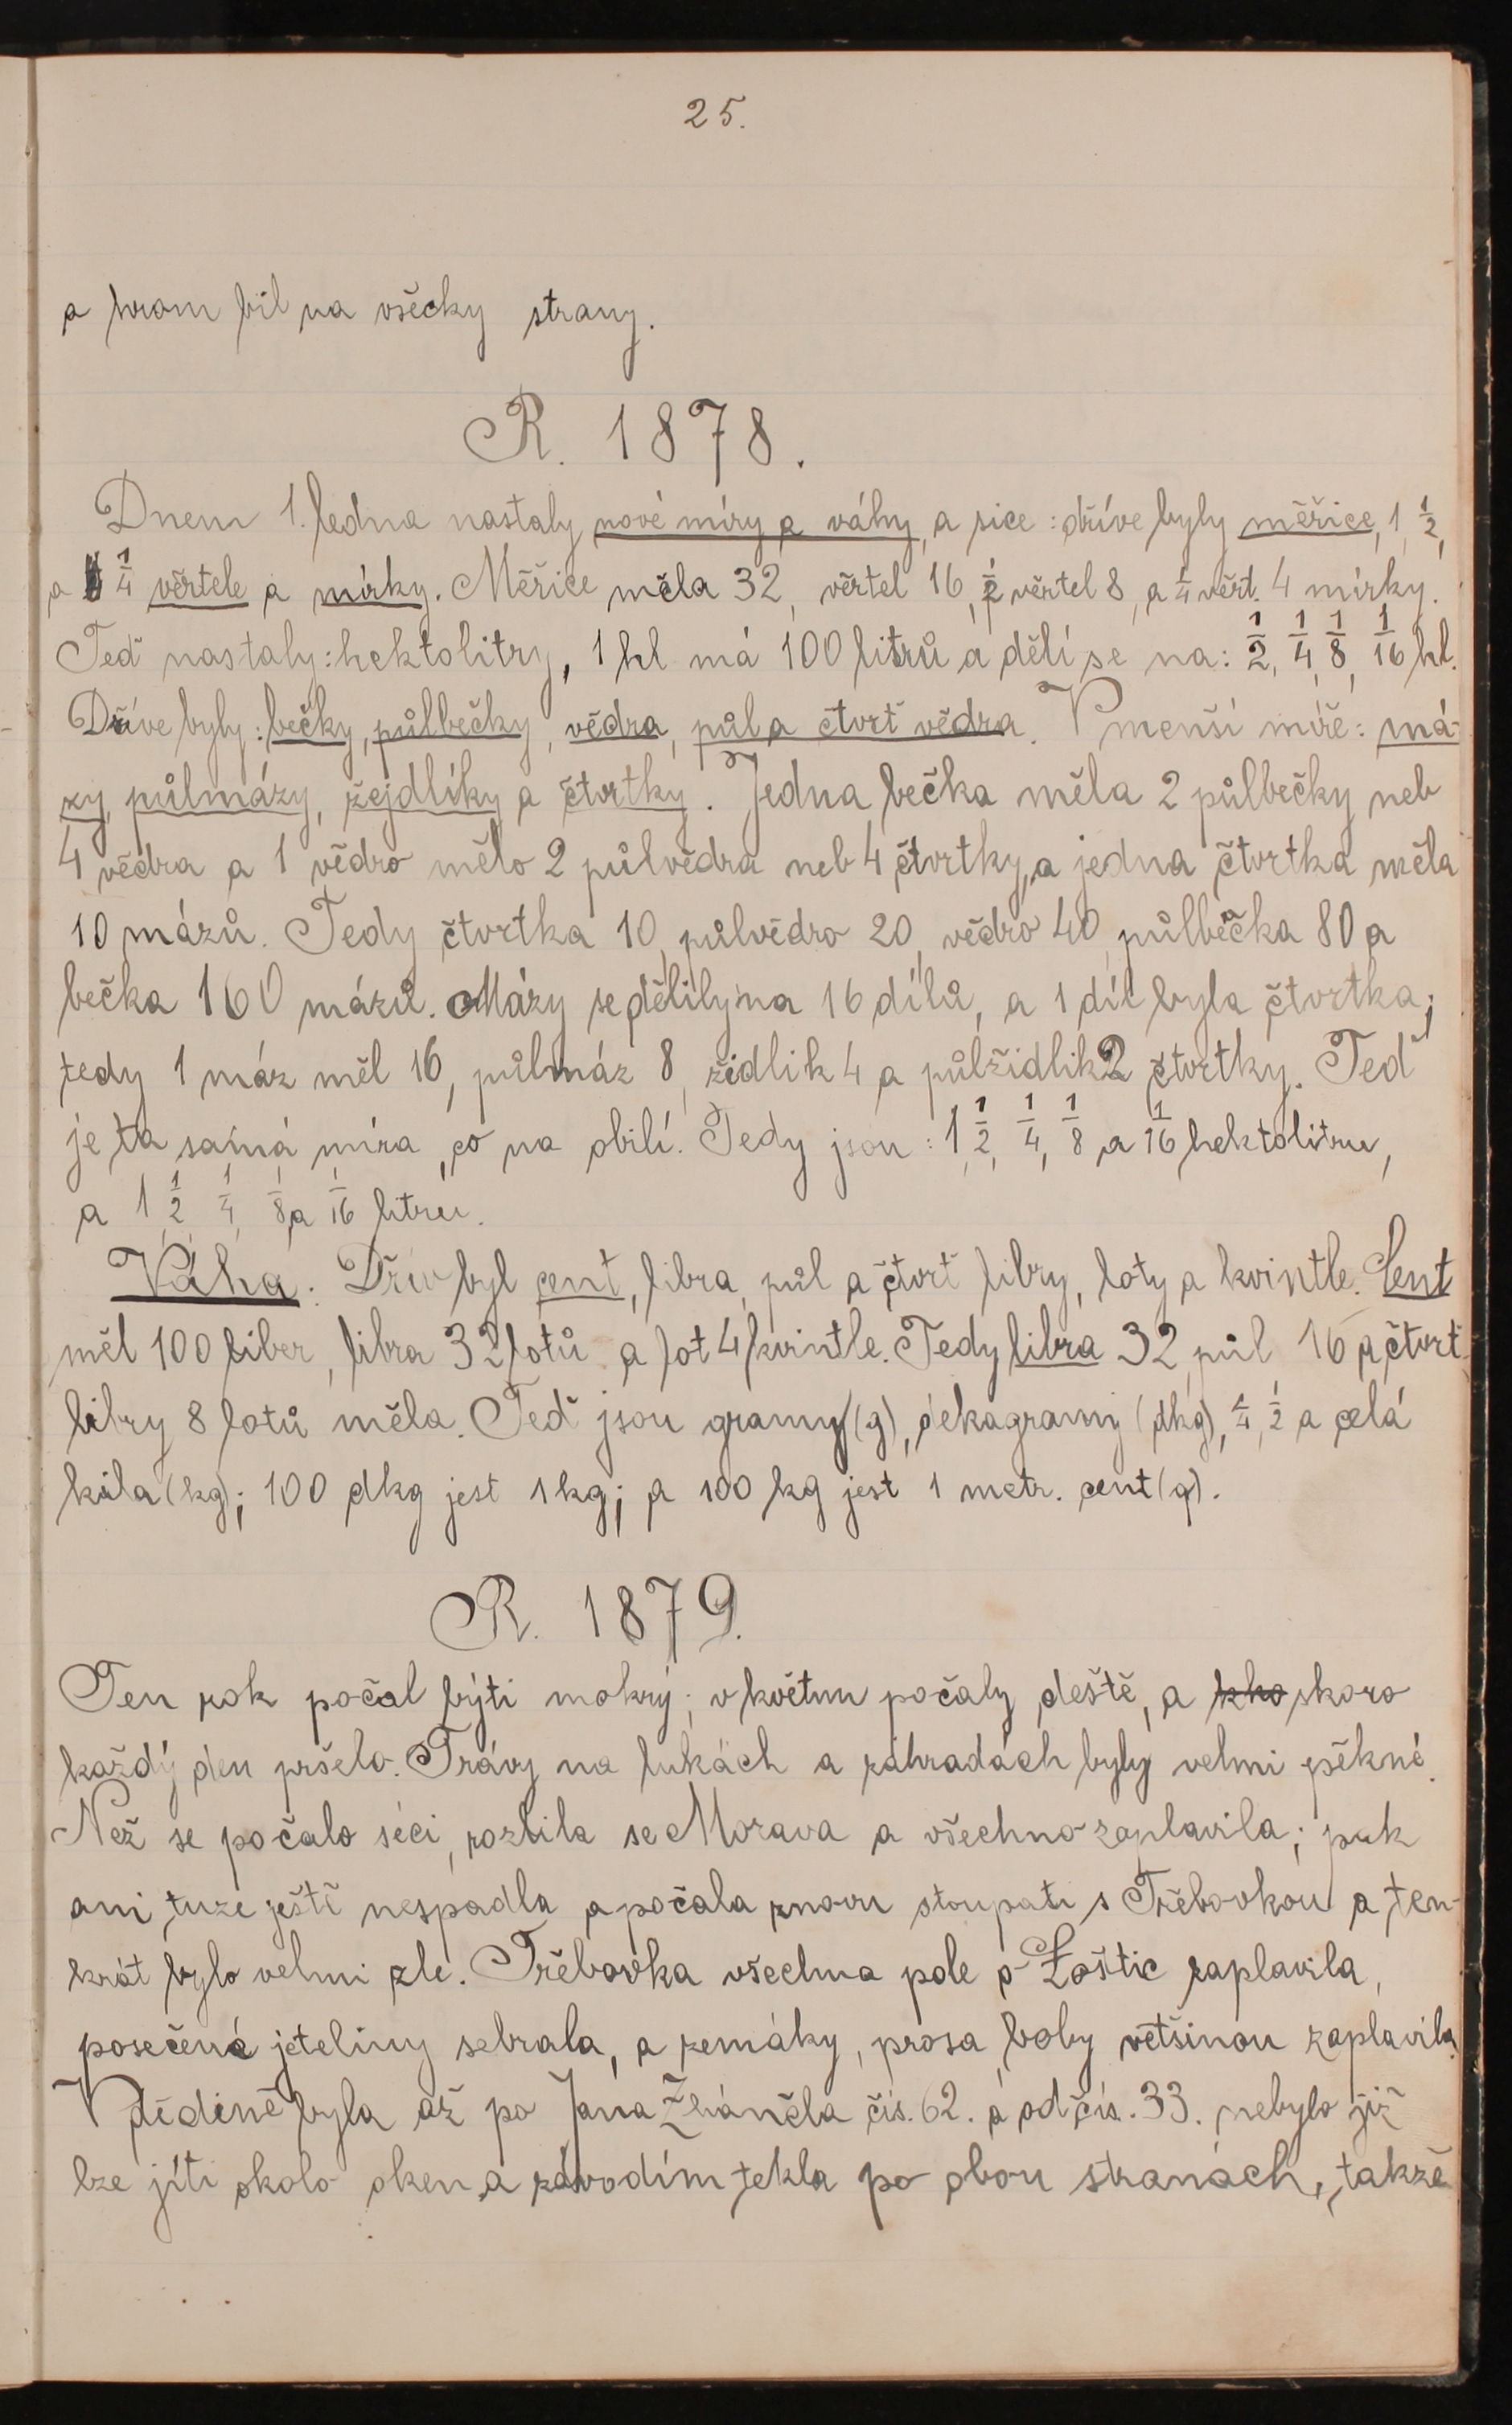 25.
a hrom bil na všecky strany.
R. 1878.
Dnem 1. ledna nastaly nové míry a váhy, a sice: dříve byly měřice, 1, ½,
a ¼ věrtele a mírky. Měřice měla 32, věrtel 16, ½ věrtel 8, a ¼ věrt. 4 mírky.
Teď nastaly: hektolitry, 1 hl má 100 litrů a dělí se na: ½, ¼, ⅛, 1/16 hl.
Dříve byly: bečky, půlbečky, vědra, půl a čtvrť vědra. V menší míře: má-
zy, půlmázy, žejdlíky a čtvrtky. Jedna bečka měla 2 půlbečky neb
4 vědra a 1 vědro mělo 2 půlvědra neb 4 čtvrtky, a jedna čtvrtka měla
10 mázů. Tedy čtvrtka 10, půlvědro 20, vědro 40, půlbečka 80 a
bečka 160 mázů. Mázy se dělily na 16 dílů, a 1 díl byla čtvrtka;
tedy 1 máz měl 16, půlmáz 8, židlik 4 a půlžidlik 2 čtvrtky. Teď
je ta samá míra, co na obilí. Tedy jsou: 1, ½, ¼, ⅛ a 1/16 hektolitru,
a 1, ½, ¼, ⅛, a 1/16 litru.
Váha. Dřív byl cent, libra, půl a čtvrť libry, loty a kvintle. Cent
měl 100 liber, libra 32 lotů a lot 4 kvintle. Tedy libra 32, půl 16 a čtvrt
libry 8 lotů měla. Teď jsou gramy (g), dekagramy (dkg), ¼, ½ a celá
kila (kg); 100 dkg jest 1 kg; a 100 kg jest 1 metr. cent (q).
R. 1879.
Ten rok počal býti mokrý; v květnu počaly deště, a kho skoro
každý den pršelo. Trávy na lukách a záhradách byly velmi pěkné.
Než se počalo séci, rozlila se Morava a všechno zaplavila; pak
ani tuze ještě nespadla a počala znovu stoupati s Třebovkou a ten-
krát bylo velmi zle. Třebovka všechna pole o Loštic zaplavila,
posečená jeteliny sebrala, a zemáky, prosa, boby většinou zaplavila.
V dědině byla až po Jana čís. 62. a od čís. 33. nebylo již
lze jíti okolo oken, a závodím tekla po obou stranách, takže